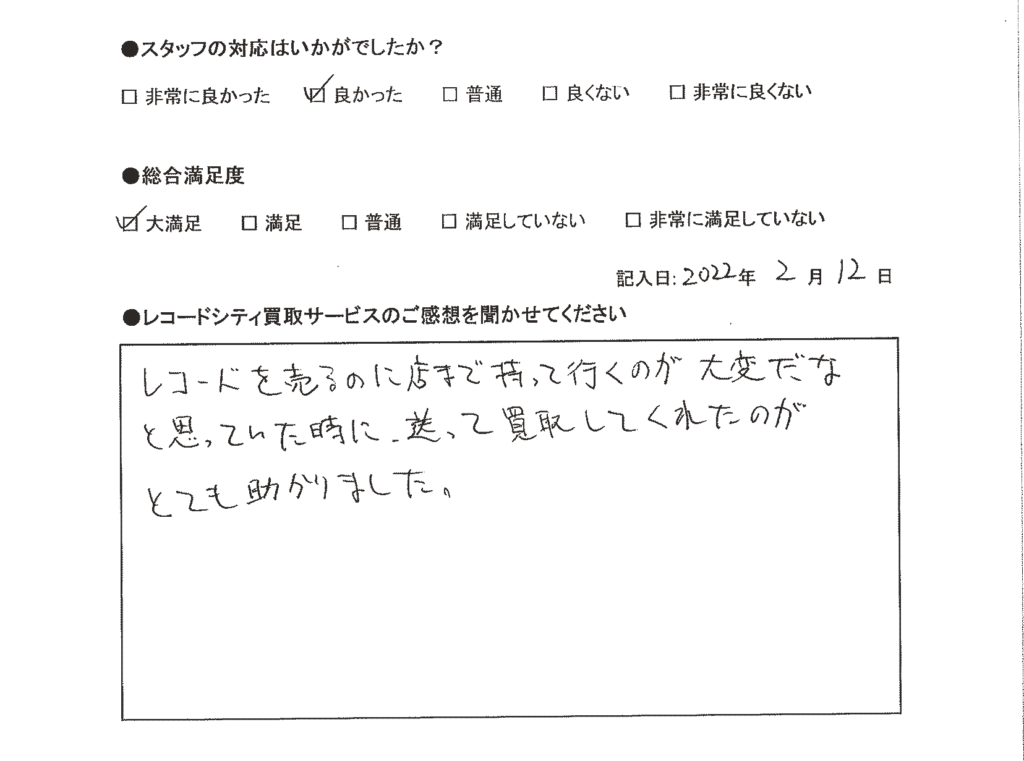 ●スタッフの対応はいかがでしたか？
□ 非常に良かった ☑ 良かった □ 普通 □ 良くない □ 非常に良くない
●総合満足度
☑ 大満足 □ 満足 □ 普通 □ 満足していない □ 非常に満足していない
記入日:2022年 2 月 12 日
●レコードシティ買取サービスのご感想を聞かせてください
レコードを売るのに店まで持って行くのが大変だな
と思っていた時に、送って買取してくれたのが
とても助かりました。